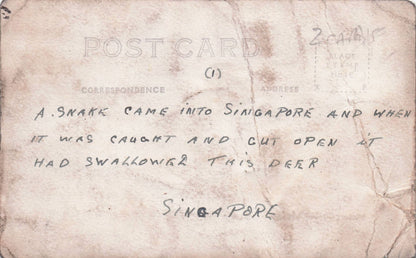 POST CARD
(1)
CORRESPONDENCE ADDRESS
A SNAKE CAME INTO SINGAPORE AND WHEN
IT WAS CAUGHT AND CUT OPEN IT
HAD SWALLOWED THIS DEER
SINGAPORE